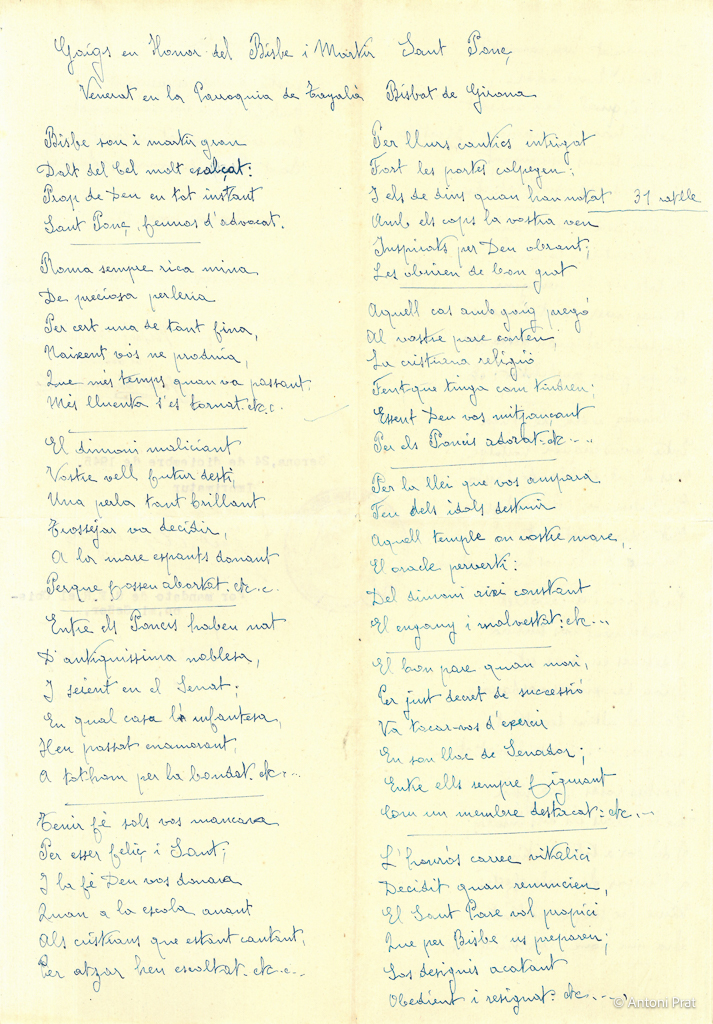 Goigs en Honor del Bisbe i Màrtir Sant Ponç
Venerat en la Parroquia de Tayalà Bisbat de Girona
Bisbe sou i martir gran
Dalt del Cel molt exalçat:
Prop de Deu en tot instant
Sant Ponç, feunos d'advocat.
Roma sempre rica mina
De preciosa perleria
Per cert una de tant fina,
Naixent vós ne produia,
Que més temps quan va passant,
Més lluenta s'es tornat. etc.
El dimoni maliciant
Vostre vell futur destí,
Una perla tant brillant
Trossejar va decidir,
A la mare espants donant
Perque fosseu abortat. etc.
Entre els Poncis habeu nat
D'antiquissima noblesa,
I seient en el Senat;
En qual casa la infantesa,
Heu passat enamorant,
A tothom per la bondat. etc...
Tenir fé sols vos mancava
Per esser feliç i Sant;
I la fé Deu vos donava
Quan a la escola anant
Als cristians que estant cantant,
Per atzar heu escoltat. etc...
Per llurs cantics intrigat
Fort les portes colpegeu:
I els de dins quan han notat 31 ratlle
Amb els cops la vostra veu
Inspirats per Deu obrant;
Les obriren de bon grat
Aquell cas amb goig pregó
Al vostre pare conteu,
La cristiana religió
Fent que tinga com tindreu;
Essent Deu vos mitjançant
Per els Poncis adorat. etc....
Per la llei que vos ampara
Feu dels idols destruir
Aquell temple on vostre mare,
El oracle pervertí:
Del dimoni aixi constant
El engany i malvestat. etc...
El bon pare quan morí,
Per just decret de successió
Va tocar-vos d'exercir
En son lloc de Senador;
Entre ells sempre figurant
Com un membre destacat. etc...
L'honrós carrec vitalici
Decidit quan renuncieu,
El Sant Pare vol propici
Que per Bisbe us prepareu;
Sos designis acatant
Obedient i resignat. etc....
© Antoni Prat